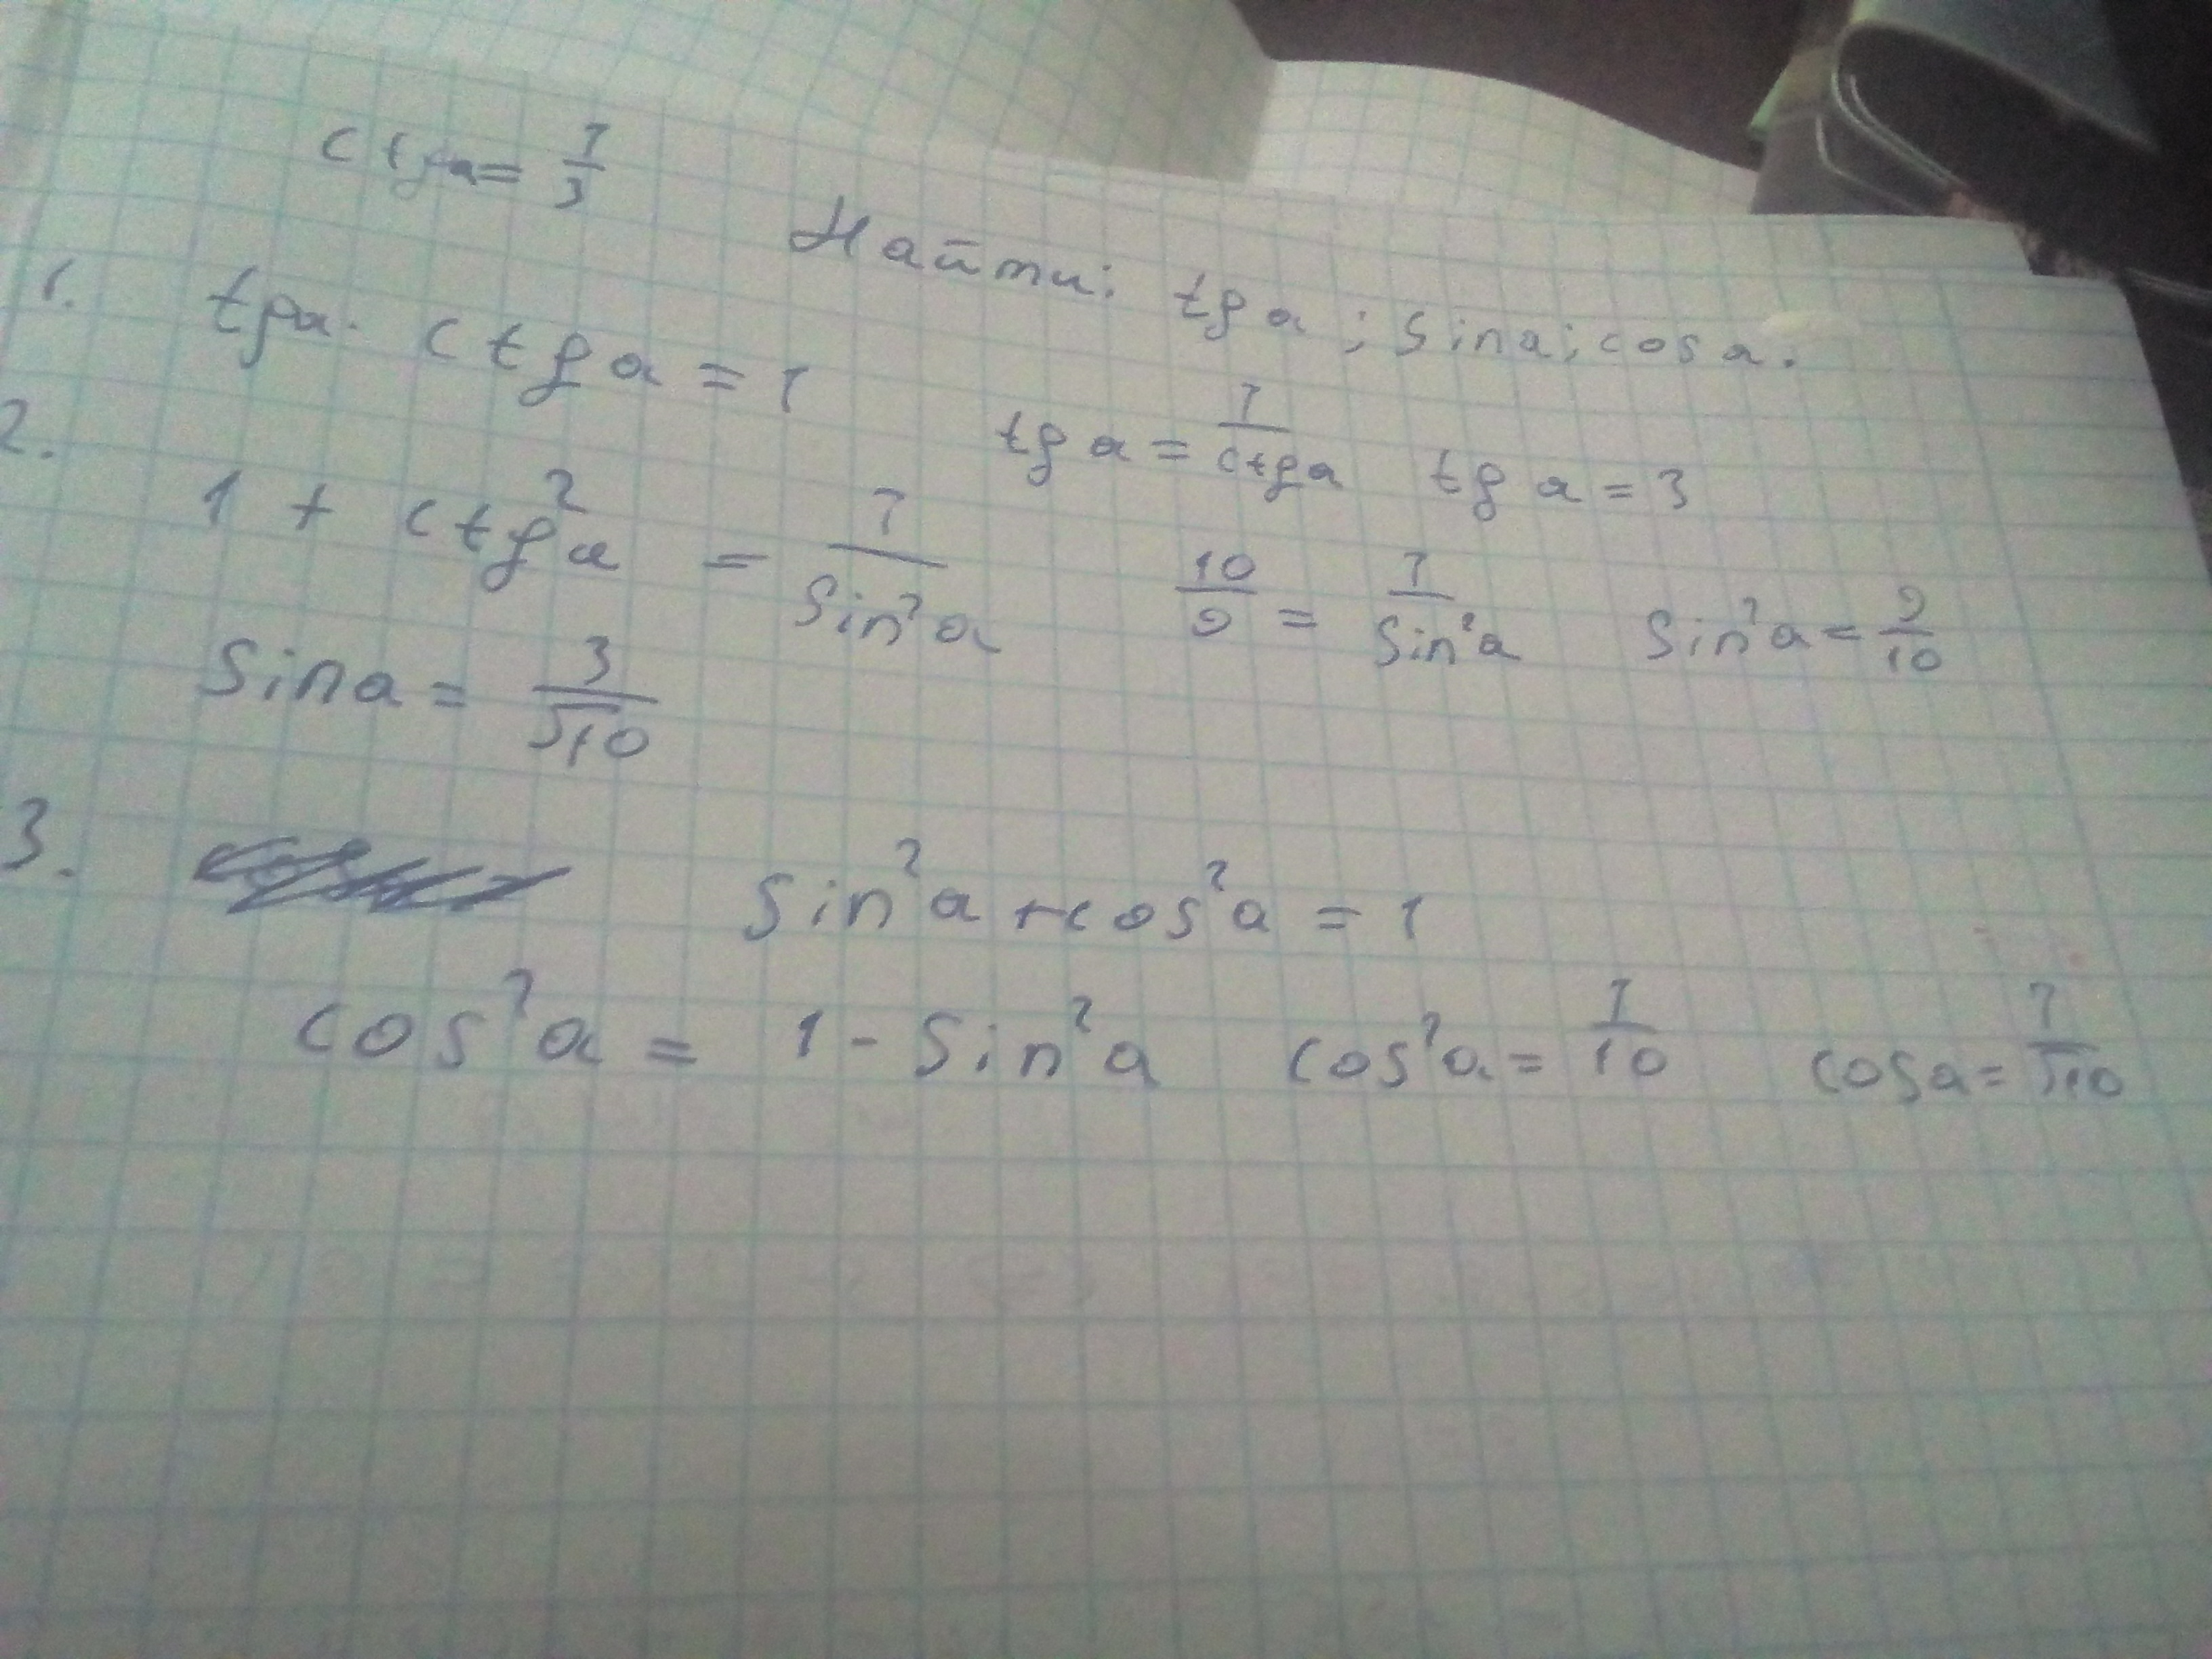 ctg a = 1/3
Найти: tg a ; sin a ; cos a.
1. tg a · ctg a = 1 tg a = 1/ctg a tg a = 3
2. 1 + ctg² a = 1/sin² a 10/9 = 1/sin² a sin² a = 9/10
sin a = 3/√10
3. sin² a + cos² a = 1
cos² a = 1 - sin² a cos² a = 1/10 cos a = 1/√10